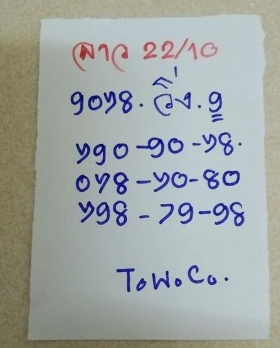 ลาว 22/10
9078. วิ่ง.9
790-90-78.
078-70-80
798-79-98
ToWoCo.